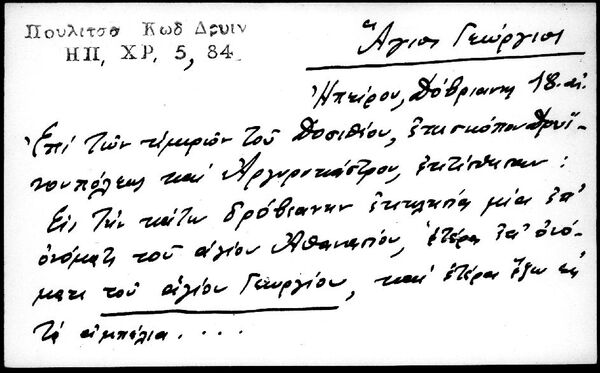 Πουλιτσα Κωδ Δρυιν
ΗΠ, ΧΡ, 5, 84
Ἅγιος Γεώργιος
Ἠπείρου, Δόβριανη 18. αἰ.
Ἐπί τῶν ἡμερῶν τοῦ Δοσιθέου, ἐπισκόπου Δρυϊ-
νουπόλεως καί Ἀργυροκάστρου, ἐκτίσθησαν :
Εἰς τήν κάτω δρόβιανην ἐκκλησία μία ἐπ'
ὀνόματι τοῦ ἁγίου Ἀθανασίου, ἑτέρα ἐπ' ὀνό-
ματι τοῦ ἁγίου Γεωργίου, καί ἑτέρα ἔξω εἰς
τά ἀμπέλια . . . .